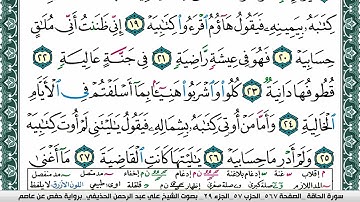 كِتَٰبَهُۥ بِيَمِينِهِۦ فَيَقُولُ هَآؤُمُ ٱقْرَءُوا۟ كِتَٰبِيَهْ ١٩ إِنِّى ظَنَنتُ أَنِّى مُلَٰقٍ
حِسَابِيَهْ ٢٠ فَهُوَ فِى عِيشَةٍ رَّاضِيَةٍ ٢١ فِى جَنَّةٍ عَالِيَةٍ ٢٢
قُطُوفُهَا دَانِيَةٌ ٢٣ كُلُوا۟ وَٱشْرَبُوا۟ هَنِيٓـًٔۢا بِمَآ أَسْلَفْتُمْ فِى ٱلْأَيَّامِ
ٱلْخَالِيَةِ ٢٤ وَأَمَّا مَنْ أُوتِىَ كِتَٰبَهُۥ بِشِمَالِهِۦ فَيَقُولُ يَٰلَيْتَنِى لَمْ أُوتَ كِتَٰبِيَهْ
٢٥ وَلَمْ أَدْرِ مَا حِسَابِيَهْ ٢٦ يَٰلَيْتَهَا كَانَتِ ٱلْقَاضِيَةَ ٢٧ مَآ أَغْنَىٰ
سورة الحاقة الصفحة ٥٦٧ حزب ٥٧ الجزء ٢٩ بصوت الشيخ علي عبد الرحمن الحذيفي برواية حفص عن عاصم